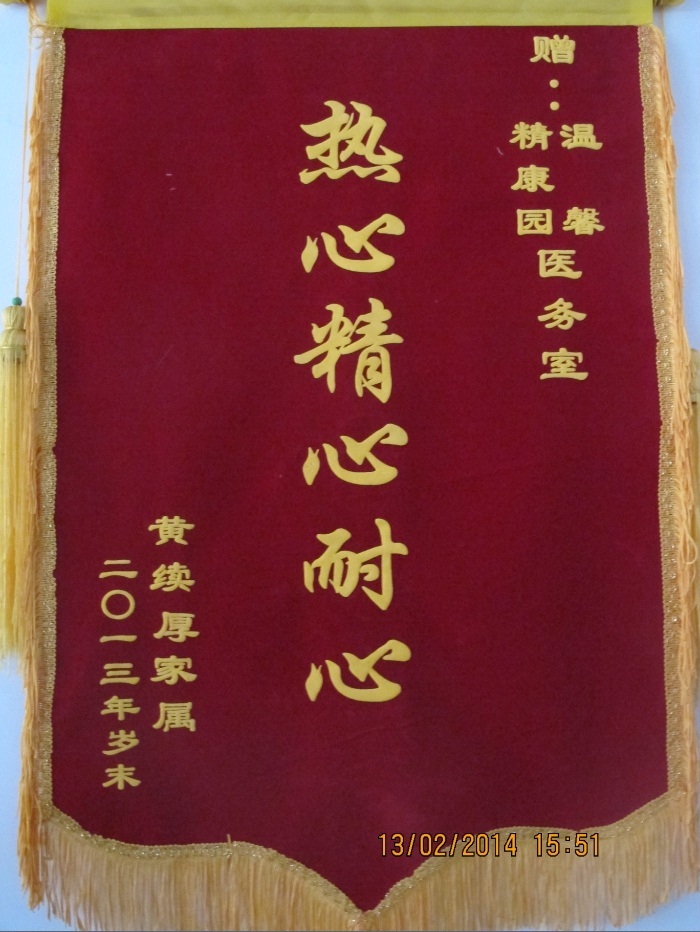 赠：
精康园
温馨
医务室
热心精心耐心
黄续厚家属
二〇一三年岁末
13/02/2014 15:51